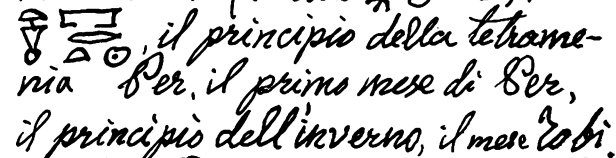 , il principio della tetrame-
nia Per, il primo mese di Per,
il principio dell'inverno, il mese Tobi